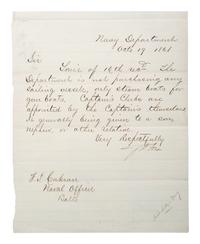 Navy Department
Octr 19 1861
Sir
Yours of 16th recd. The
Department is not purchasing any
sailing vessels, only steam boats for
gun boats. Captain's Clerks are
appointed by the Captains themselves
& generally being given to a son,
nephew, or other relative.
Very Respectfully
Naval Officer
Balto